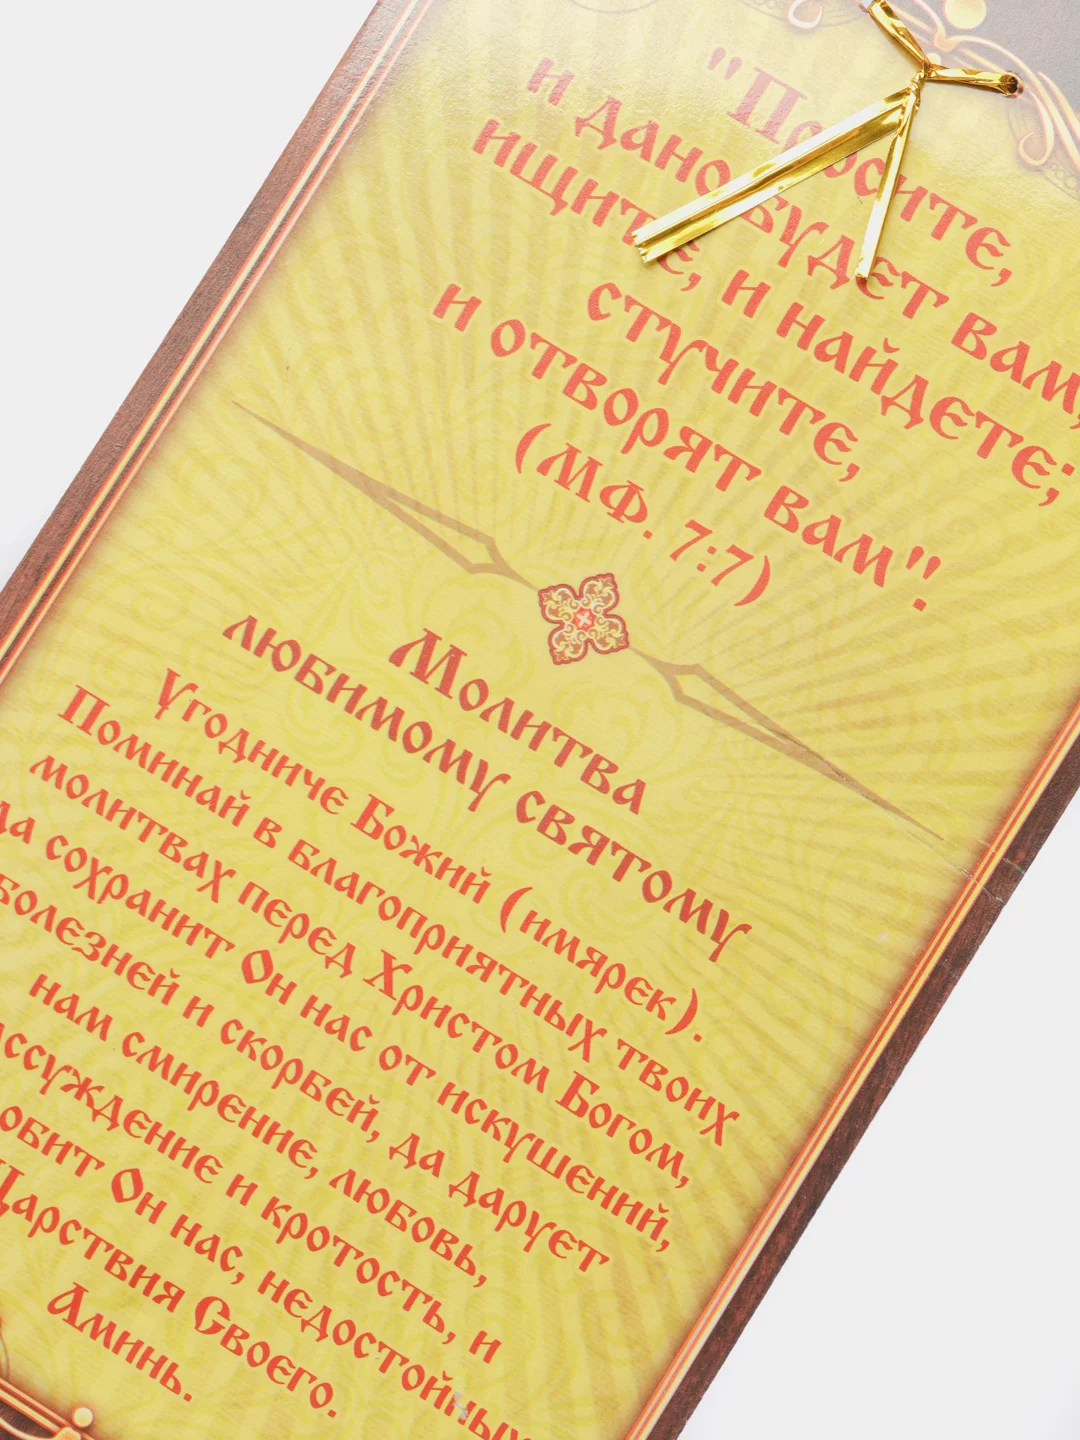 "Просите,
и дано будет вам,
ищите, и найдете;
стучите,
и отворят вам".
(МФ. 7:7)
Молитва
любимому святому
Угодниче Божий (имярек).
Поминай в благоприятных твоих
молитвах перед Христом Богом,
да сохранит Он нас от искушений,
болезней и скорбей, да дарует
нам смирение, любовь,
рассуждение и кротость, и
Он нас, недостойных
Царствия Своего.
Аминь.